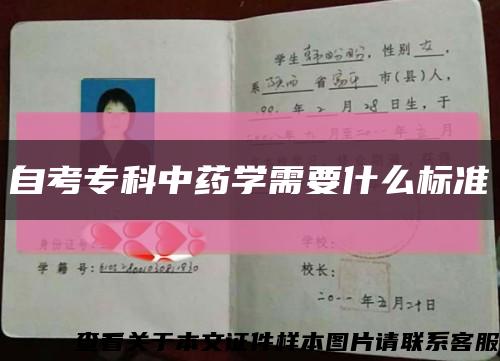 学生韩盼盼，性别女，
系陕西省富平市(县)人，
年2月28日生，于
年九月至二〇一一年五月
自考专科中药学需要什么标准
身份证号:
学籍号:
学校:
校长:
二〇一一年五月24日
查看关于本文证件样本图片请联系客服